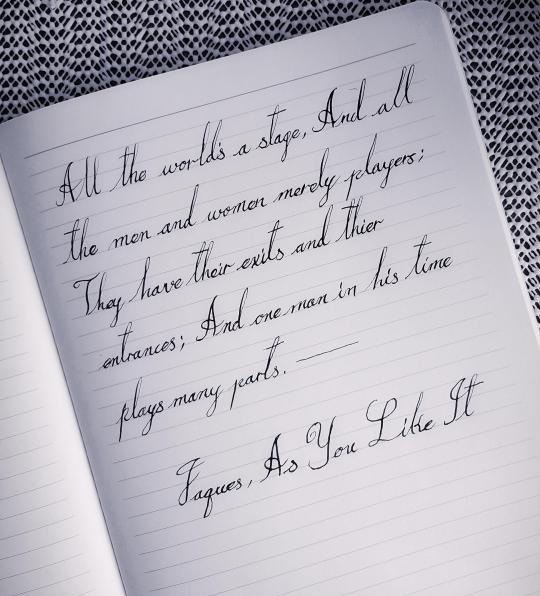 All the world's a stage, And all
the men and women merely players;
They have their exits and thier
entrances; And one man in his time
plays many parts. —
Jaques, As You Like It